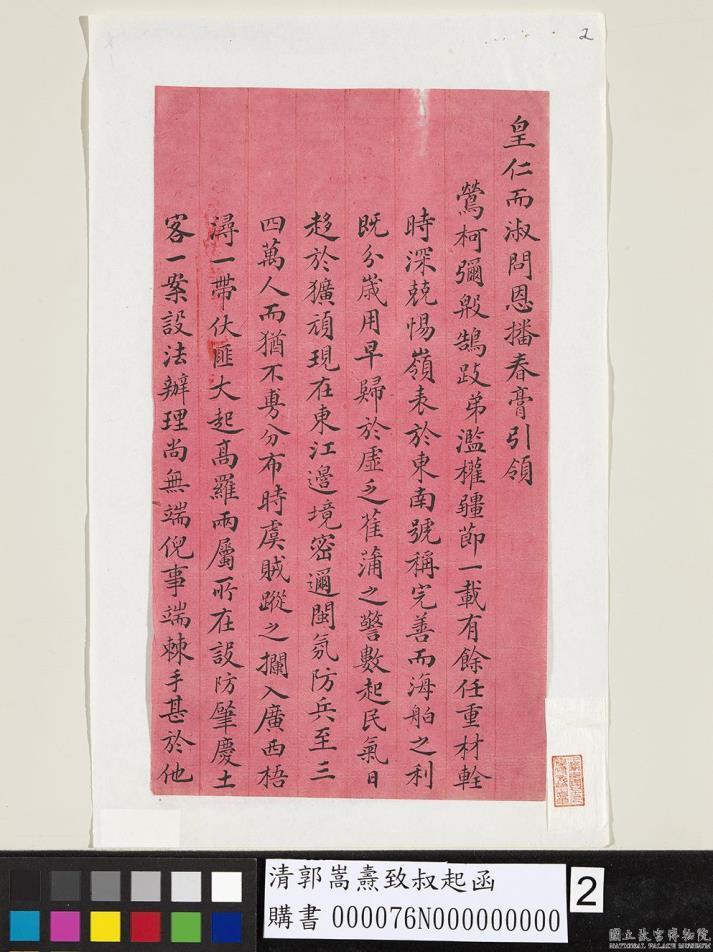 2
皇仁而淑問恩播春膏引領
鶯柯彌殷鵠跂弟濫權疆節一載有餘任重材輇
時深兢惕嶺表於東南號稱完善而海舶之利
既分歲用早歸於虛乏萑蒲之警數起民氣日
趍於獷頑現在東江邊境密邇閩氛防兵至三
四萬人而猶不旉分布時虞賊蹤之攔入廣西梧
潯一帶伏匪大起高羅兩屬所在設防肇慶土
客一案設法辦理尚無端倪事端棘手甚於他
清郭嵩燾致叔起函
購書 000076N000000000
2
國立故宮博物院
NATIONAL PALACE MUSEUM